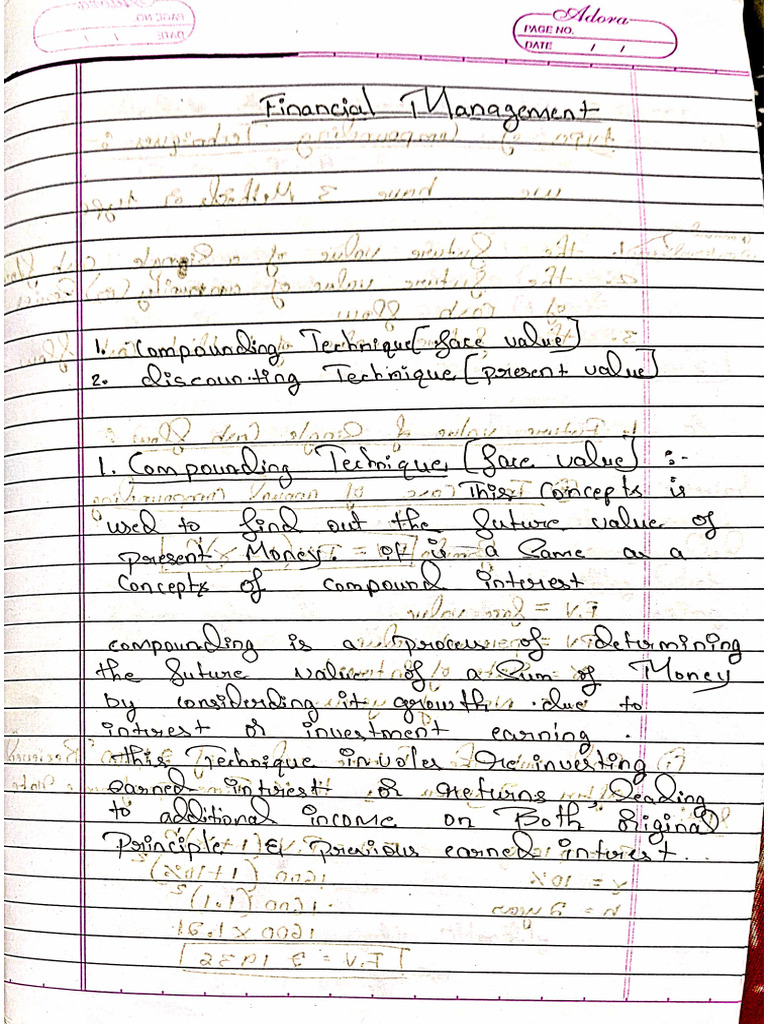 Adora
PAGE NO.
DATE / /
Financial Management
1. Compounding Technique [face value]
2. discounting Technique [present value]
1. Compounding Technique [face value] :-
This Concepts is
used to find out the future value of
present Money. is a Same as a
Concepts of compound interest
compounding is a process of determining
the future value of a Sum of Money
by considerding it growth due to
interest or investment earning.
this Technique involes Reinvesting
earned interest or returns, leading
to additional income on Both Original
Principle & previous earned interest.